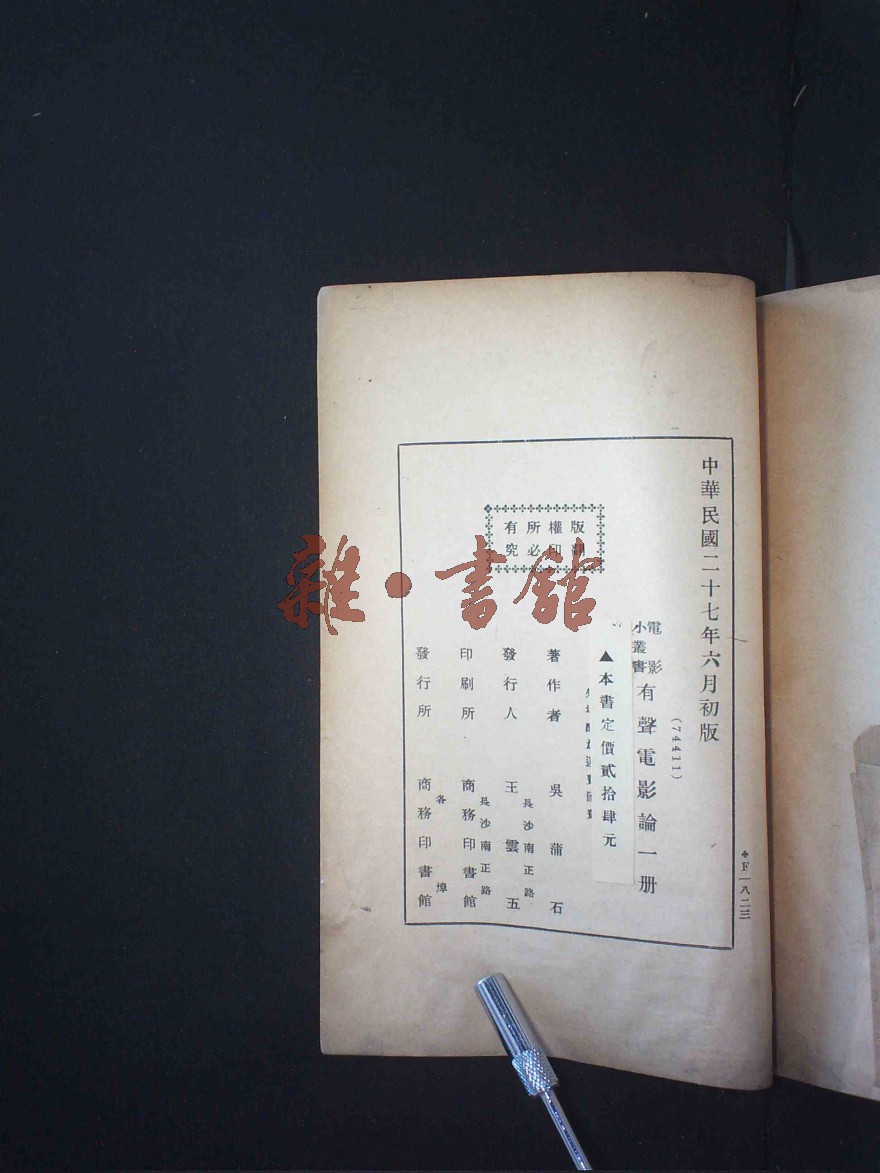 中華民國二十七年六月初版
(74411)
電影
小叢書
有聲電影論一册
▲本書定價貳拾肆元
著作者 吳蒲石
發行人 王雲五
長沙南正路
印刷所 商務印書館
長沙南正路
發行所 商務印書館
各埠
版權所有
翻印必究
＊F一八二三
雜·書館